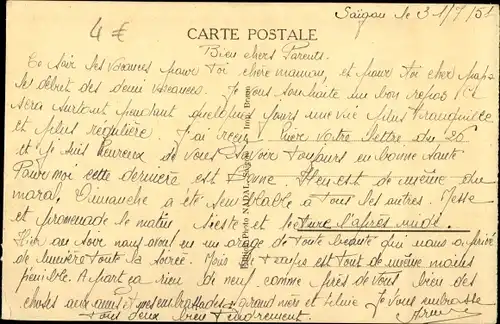 4 €
Saïgon le 31/7/51
CARTE POSTALE
Bien chers Parents.
Ce soir les vacances pour toi chère maman, et pour toi cher papa
le début des demi vacances. Je vous souhaite un bon repos, ce
sera surtout pendant quelques jours une vie plus tranquille
et plus régulière. J'ai reçu hier votre lettre du 26
et je suis heureux de vous savoir toujours en bonne santé.
Pour moi cette dernière est bonne. Il en est de même du
moral. Dimanche a été semblable à tous les autres. Messe
et promenade le matin sieste et lecture l'après midi.
Hier au soir nous avons eu un orage de toute beauté qui nous a privé
de lumière toute la soirée. Mais le temps est tout de même moins
pénible. A part ça rien de neuf comme près de vous, bien des
choses aux amis et mes embrassades à grand mère et Je vous embrasse
tous deux bien tendrement.
Photo NADAL, Saïgon